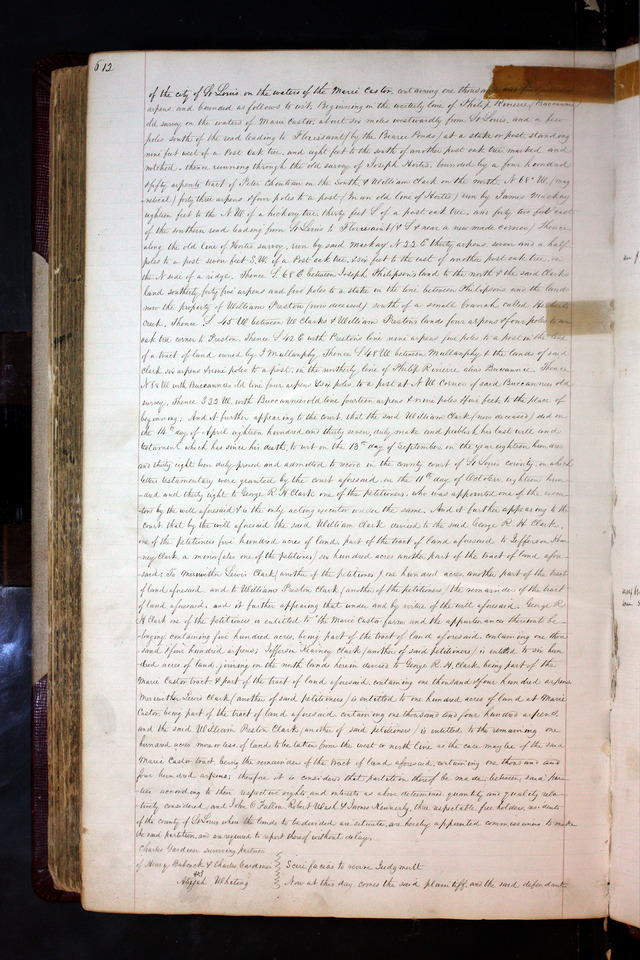 612
of the city of St Louis, on the waters of the Marie Castor, containing one thousand and four hundred
arpens, and bounded as follows to wit, Beginning on the westerly line of Philip Riviere, Baccannie
old survey on the waters of Marie Castor, about six miles westwardly from St Louis, and a few
poles south of the road leading to Florissant (by the Bearee Ponds) at a stake or post, standing
nine feet west of a Post Oak tree, and eight feet to the south of another post oak tree marked and
notched, thence running through the old survey of Joseph Hortes, bounded by a four hundred
& fifty arpents tract of Peter Chouteau on the South, & William Clark on the north, N 68° W. (mag
netical) forty three arpens & four poles to a post (in an old line of Hortes) run by James Mackay
eighteen feet to the N. W of a hickory tree, thirty feet S of a post oak tree, and forty two feet east
of the southern road leading from St Louis to Florissant (& S & near a new made corner) Thence
along the old line of Hortes survey, run by said Mackay N 22 E thirty arpens, seven and a half
poles to a post seven feet S. W. of a Post oak tree, & six feet to the east of another post oak tree, on
the N side of a ridge. Thence S. 68 E between Joseph Philipson's land to the north & the said Clarks
land southerly, forty five arpens and four poles to a stake in the line between Philipsons and the lands
now the property of William Preston (now deceased) south of a small branch called
Creek. Thence S. 45 W. between W Clarks & William Prestons lands four arpens & four poles to an
oak tree corner to Preston. Thence S. 42 E with Prestons line nine arpens five poles to a post in the line
of a tract of land owned by J Mullanphy. Thence S 48 W. between Mullanphy & the lands of said
Clark six arpens & nine poles to a post, in the northerly line of Philip Riviere alias Baccannie. Thence
N 68 W with Baccannies old line four arpens & six poles, to a post at N. W Corner of said Baccannies old
survey. Thence S 22 W. with Baccannies old line fourteen arpens & nine poles four feet, to the place of
beginning. And it further appearing to the court, that the said William Clark (now deceased) did on
the 14th day of April eighteen hundred and thirty seven, duly make and publish his last will and
testament, which has since his death, to wit on the 13th day of September, in the year eighteen hundred
and thirty eight been duly proved and admitted to record in the county court of St Louis county, on which
letters testamentary were granted by the court aforesaid, on the 11th day of October, eighteen hun-
dred and thirty eight to George R H Clark one of the petitioners, who was appointed one of the execu-
tors by the will aforesaid & is the only acting executor under the same. And it further appearing to the
court that by the will aforesaid the said William Clark devised to the said George R. H Clark,
one of the petitioners five hundred acres of land, part of the tract of land aforesaid, to Jefferson Kear
ney Clark a minor (also one of the petitioners) six hundred acres another part of the tract of land afore
said: To Meriwether Lewis Clark (another of the petitioners) one hundred acres, another part of the tract
of land aforesaid and to William Preston Clark (another of the petitioners) the remainder of the tract
of land aforesaid, and it further appearing that under and by virtue of the will aforesaid, George R
H Clark one of the petitioners is entitled to "the Marie Castor farm and the appurtenances thereunto be
longing, containing five hundred acres, being part of the tract of land aforesaid, containing one thou
sand & four hundred arpens; Jefferson Kearney Clark (another of said petitioners) is entitled to six hun
dred acres of land, joining on the north lands herein devised to George R. H. Clark, being part of the
Marie Castor tract & part of the tract of land aforesaid containing one thousand & four hundred arpens,
Meriwether Lewis Clark (another of said petitioners) is entitled to one hundred acres of land at Marie
Castor, being part of the tract of land aforesaid containing one thousand and four hundred arpens,
and the said William Preston Clark (another of said petitioners) is entitled to the remaining one
hundred acres, more or less, of lands to be taken from the west or north line as the case may be of the said
Marie Castor tract, being the remainder of the tract of land aforesaid, containing one thousand and
four hundred arpens; therefore it is considered that partition thereof be made between said par-
ties according to their respective rights and interests as above determined, quantity and quality rela-
tively considered, and John O Fallon, Robert Wash & James Kennerly, three respectable free holders, residents
of the county of St Louis, where the lands to be divided are situate, are hereby appointed commissioners to make
the said partition, and are required to report thereof without delay.
Charles Gardner surviving partner
of Henry Babcock & Charles Gardner } Scire facias to revive Judgment
vs
Abijah Whiting } Now at this day comes the said plaintiff, and the said defendant